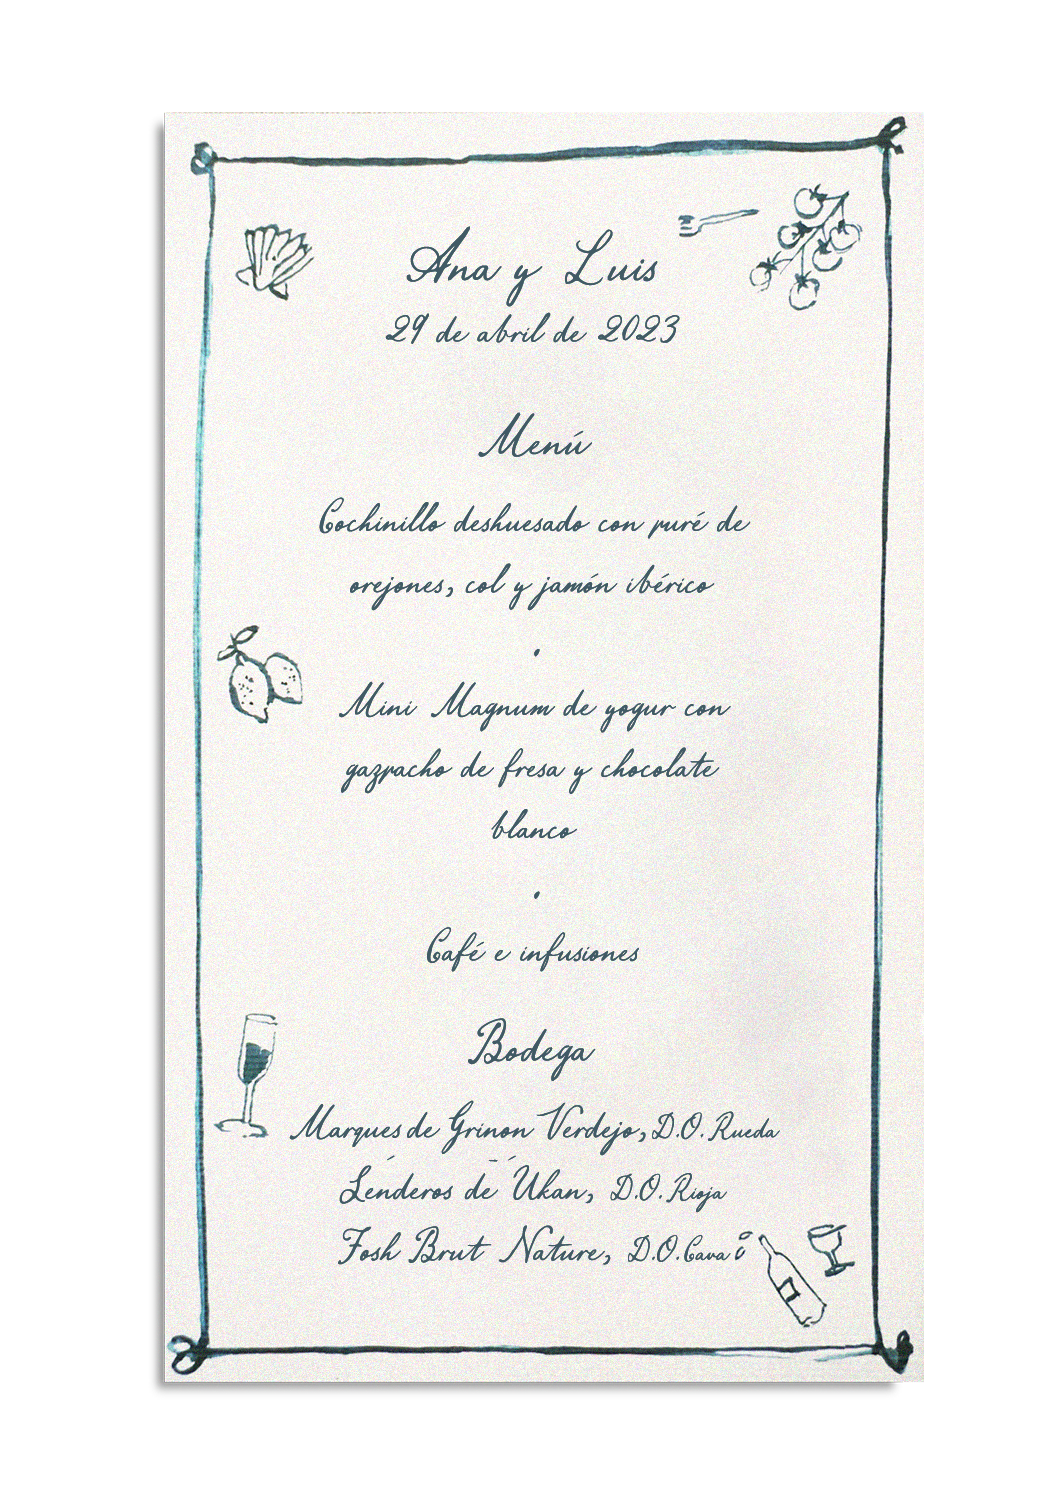 Ana y Luis
29 de abril de 2023
Menú
Cochinillo deshuesado con puré de
orejones, col y jamón ibérico
.
Mini Magnum de yogur con
gazpacho de fresa y chocolate
blanco
.
Café e infusiones
Bodega
Marques de Grinon Verdejo, D.O. Rueda
Lenderos de Ukan, D.O. Rioja
Fosh Brut Nature, D.O. Cava